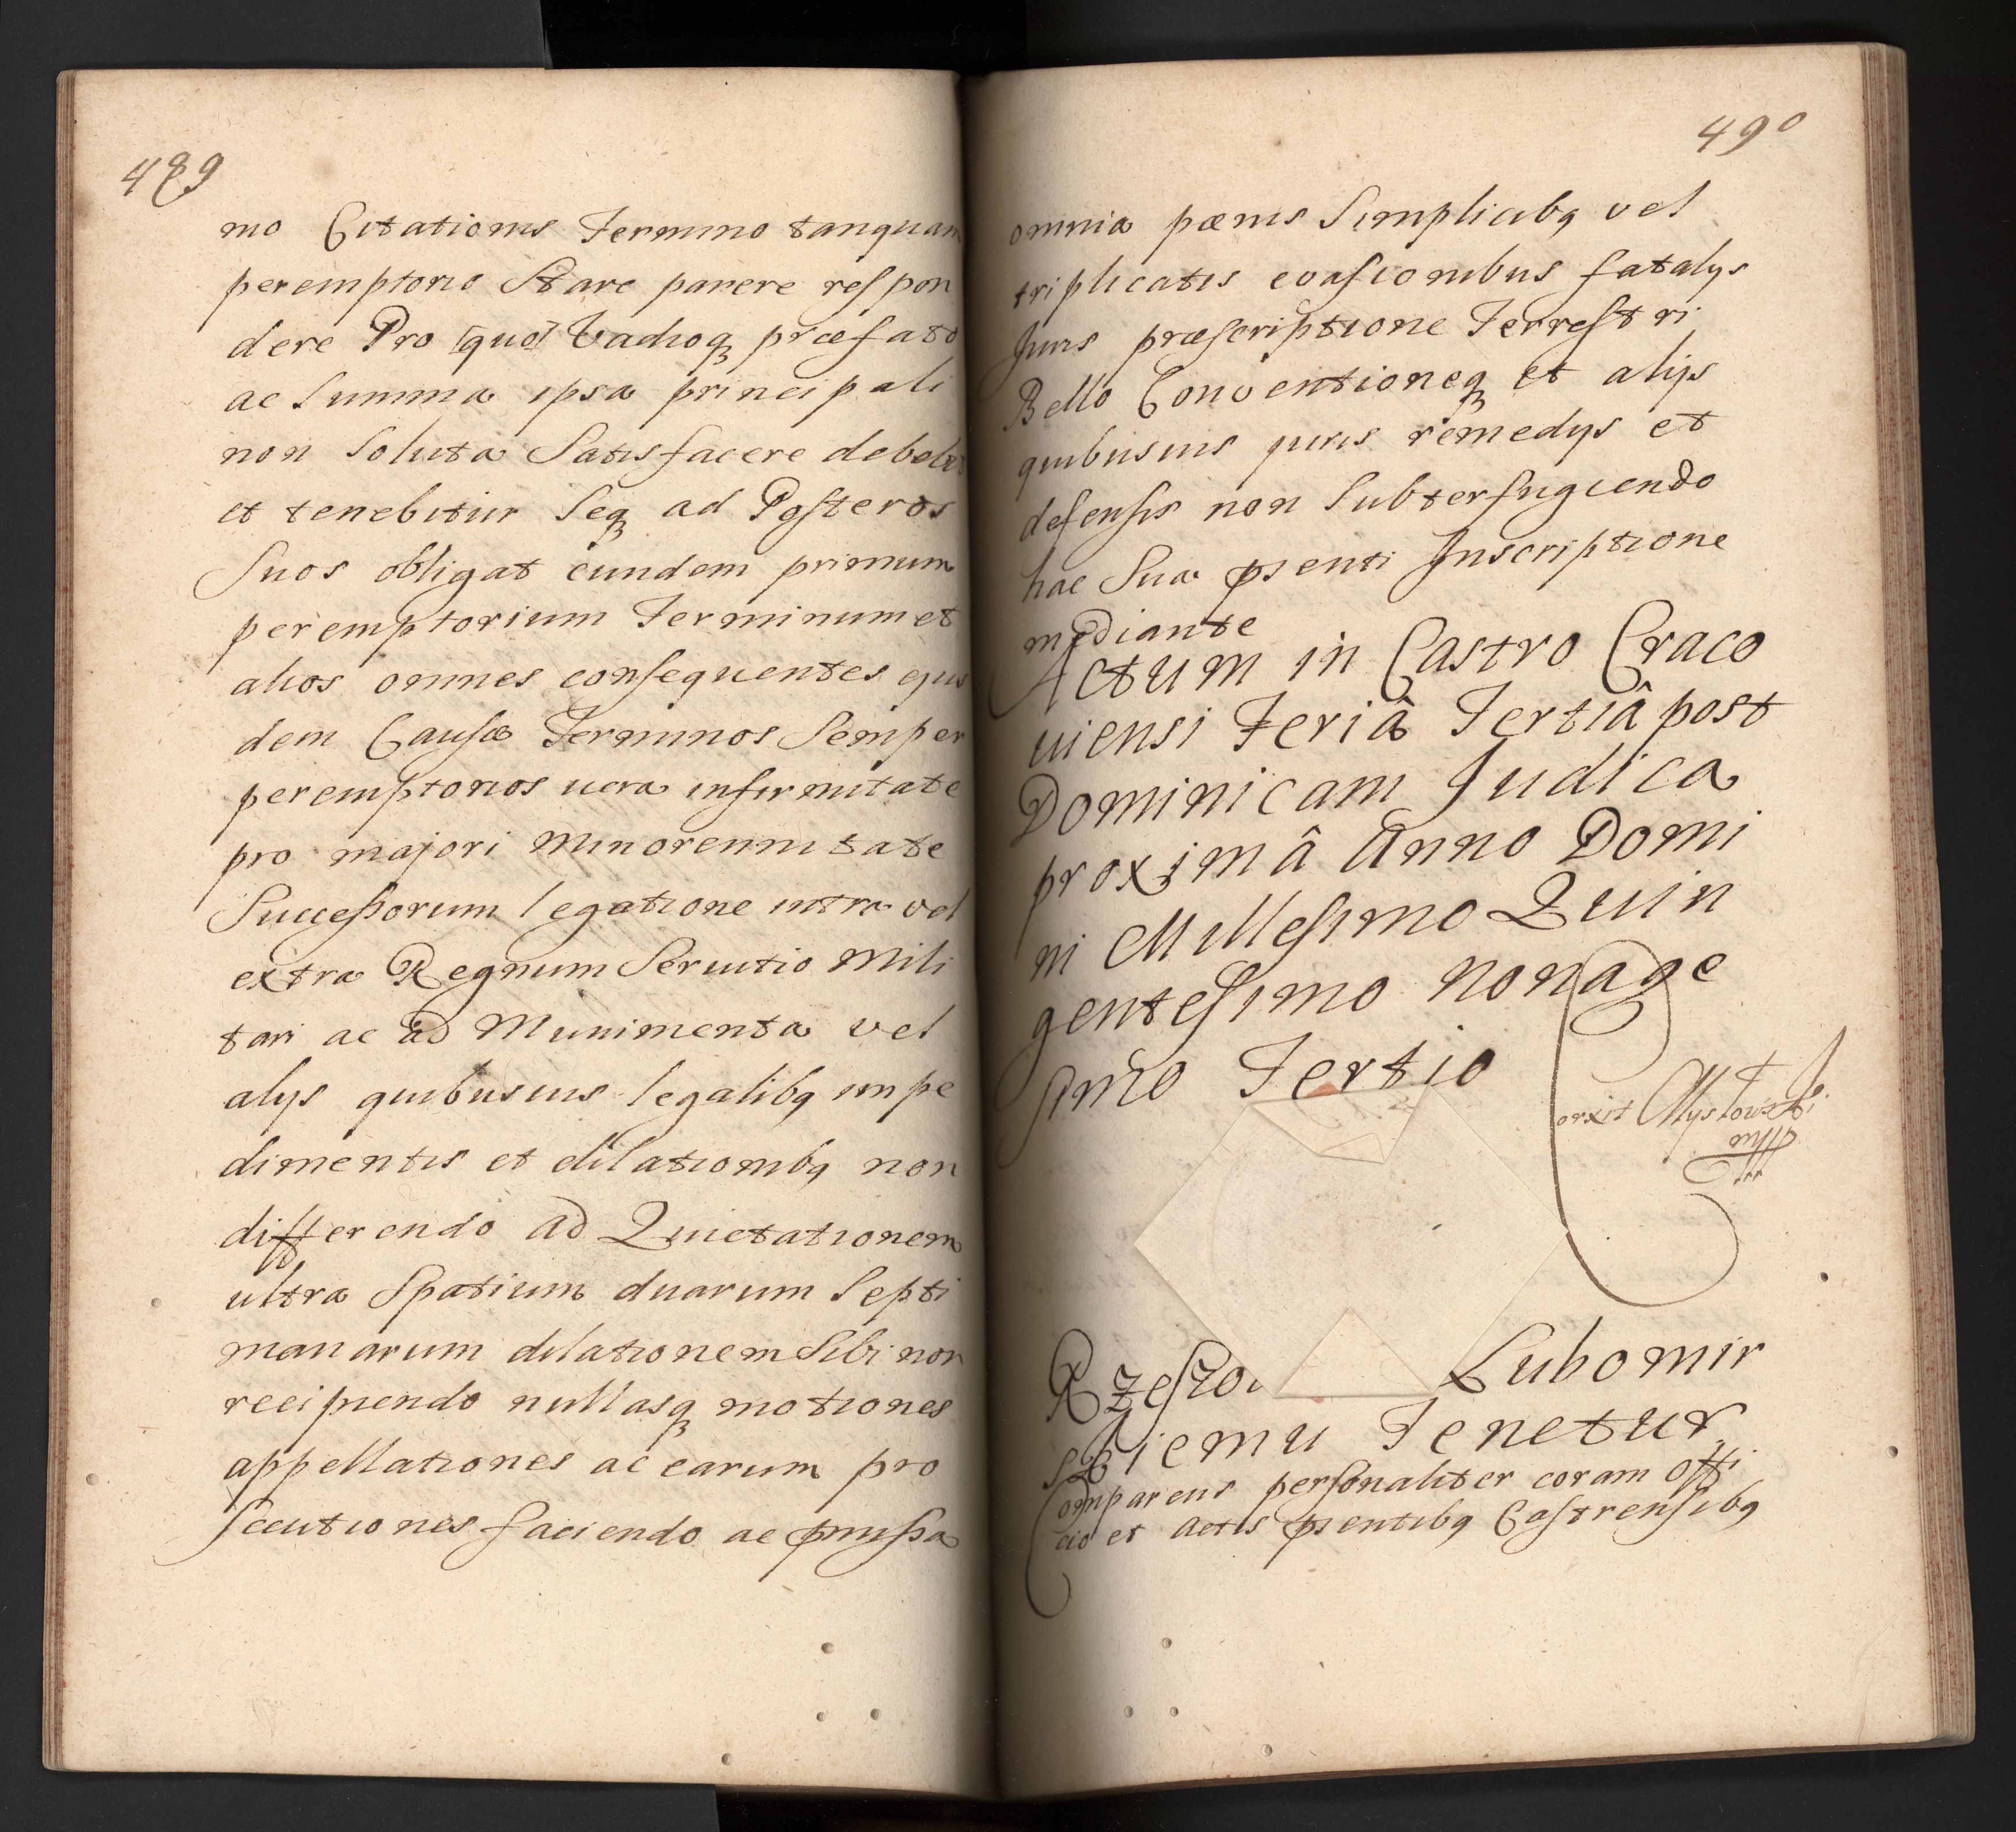 489
mo Citationis Termino tanquam
peremptorio Stare parere respon
dere Pro [quo] Vadioq praefato
ac Summa ipsa principali
non Soluta Satisfacere debebit
et tenebitur Seq ad Posteros
Suos obligat eundem primum
peremptorium Terminum et
alios omnes consequentes ejus
dem Causae Terminos Semper
peremptorios vera infirmitate
pro majori Minorennitate
Successorum legatione intra vel
extra Regnum Servitio Mili
tari ac ad Munimenta vel
alys quibusvis legalibq impe
dimentis et dilationibq non
differendo ad Quietationem
ultra Spatium duarum Septi
manarum dilationem Sibi non
recipiendo nullasq motiones
appellationes ac earum pro
secutiones faciendo ac pmissa
490
omnia paenis Simplicibq vel
triplicatis evasionibus fatalys
Juris praescriptione Terrestri
Bello Conventioneq et alijs
quibusvis juris remedys et
defensis non Subterfugiendo
hac Sua psenti Inscriptione
mediante
Actum in Castro Craco
viensi Feriâ Tertiâ post
Dominicam Judica
proximâ Anno Domi
ni Millesimo Quin
gentesimo Nonage
simo Tertio
Lubomir
skiemu Tenetur
Comparens personaliter coram Offi
cio et Actis psentibq Castrensibq